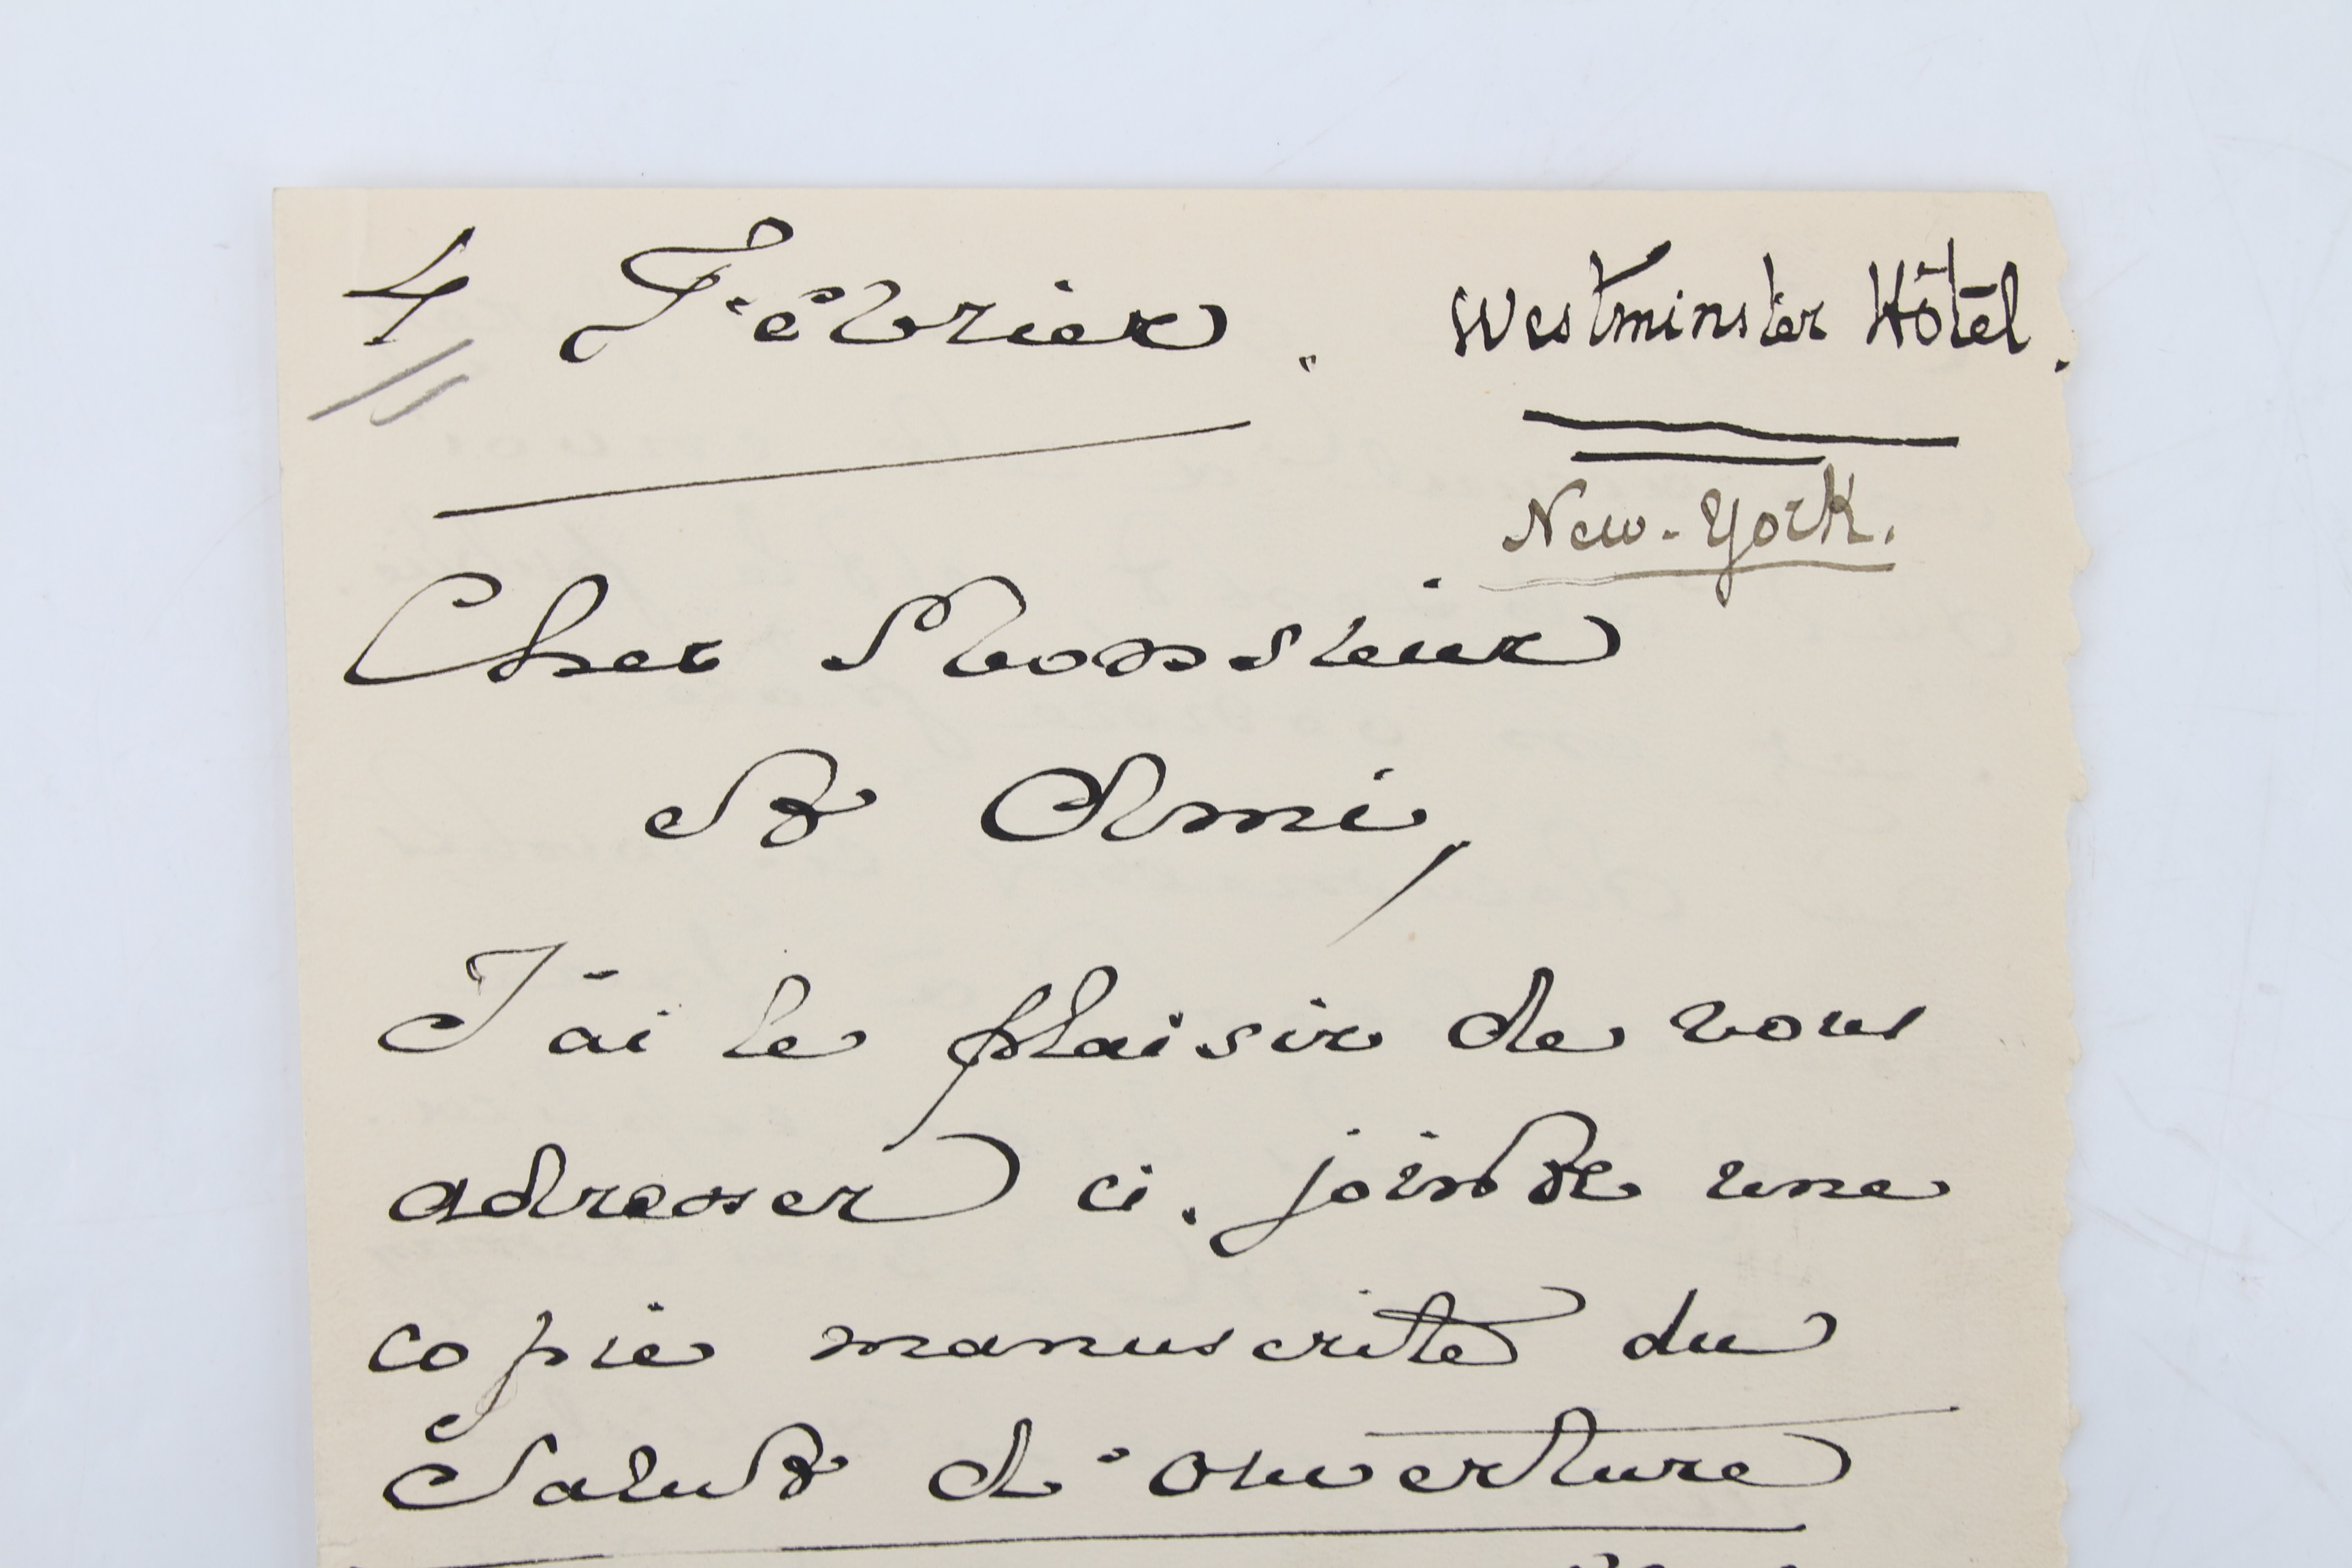 4 Février. Westminster Hôtel.
New-York.
Cher Monsieur
et Ami,
J'ai le plaisir de vous
adresser ci-jointe une
copie manuscrite du
Salut d'ouverture